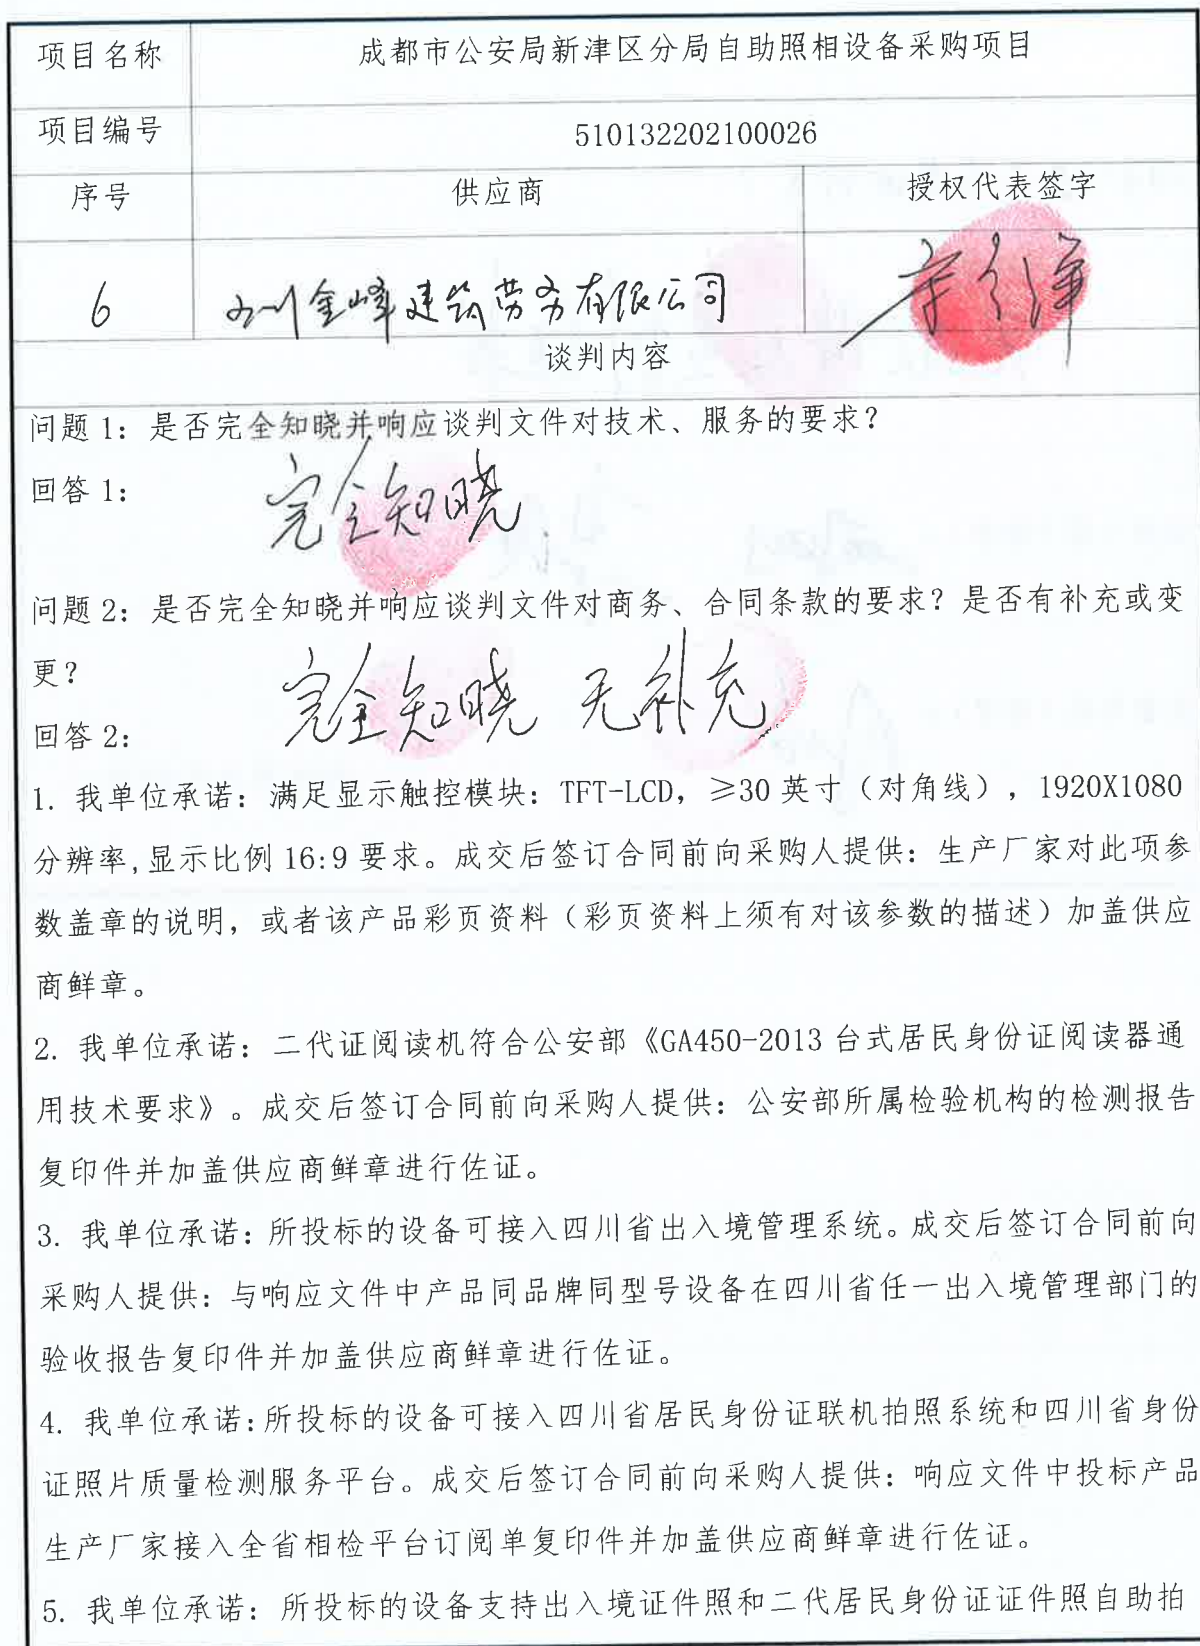 项目名称 成都市公安局新津区分局自助照相设备采购项目
项目编号 510132202100026
序号 供应商 授权代表签字
6 四川金峰建筑劳务有限公司
谈判内容
问题 1：是否完全知晓并响应谈判文件对技术、服务的要求？
回答 1： 完全知晓
问题 2：是否完全知晓并响应谈判文件对商务、合同条款的要求？是否有补充或变
更？
回答 2： 完全知晓 无补充
1. 我单位承诺：满足显示触控模块：TFT-LCD，≥30 英寸（对角线），1920X1080
分辨率,显示比例 16:9 要求。成交后签订合同前向采购人提供：生产厂家对此项参
数盖章的说明，或者该产品彩页资料（彩页资料上须有对该参数的描述）加盖供应
商鲜章。
2. 我单位承诺：二代证阅读机符合公安部《GA450-2013 台式居民身份证阅读器通
用技术要求》。成交后签订合同前向采购人提供：公安部所属检验机构的检测报告
复印件并加盖供应商鲜章进行佐证。
3. 我单位承诺：所投标的设备可接入四川省出入境管理系统。成交后签订合同前向
采购人提供：与响应文件中产品同品牌同型号设备在四川省任一出入境管理部门的
验收报告复印件并加盖供应商鲜章进行佐证。
4. 我单位承诺：所投标的设备可接入四川省居民身份证联机拍照系统和四川省身份
证照片质量检测服务平台。成交后签订合同前向采购人提供：响应文件中投标产品
生产厂家接入全省相检平台订阅单复印件并加盖供应商鲜章进行佐证。
5. 我单位承诺：所投标的设备支持出入境证件照和二代居民身份证证件照自助拍